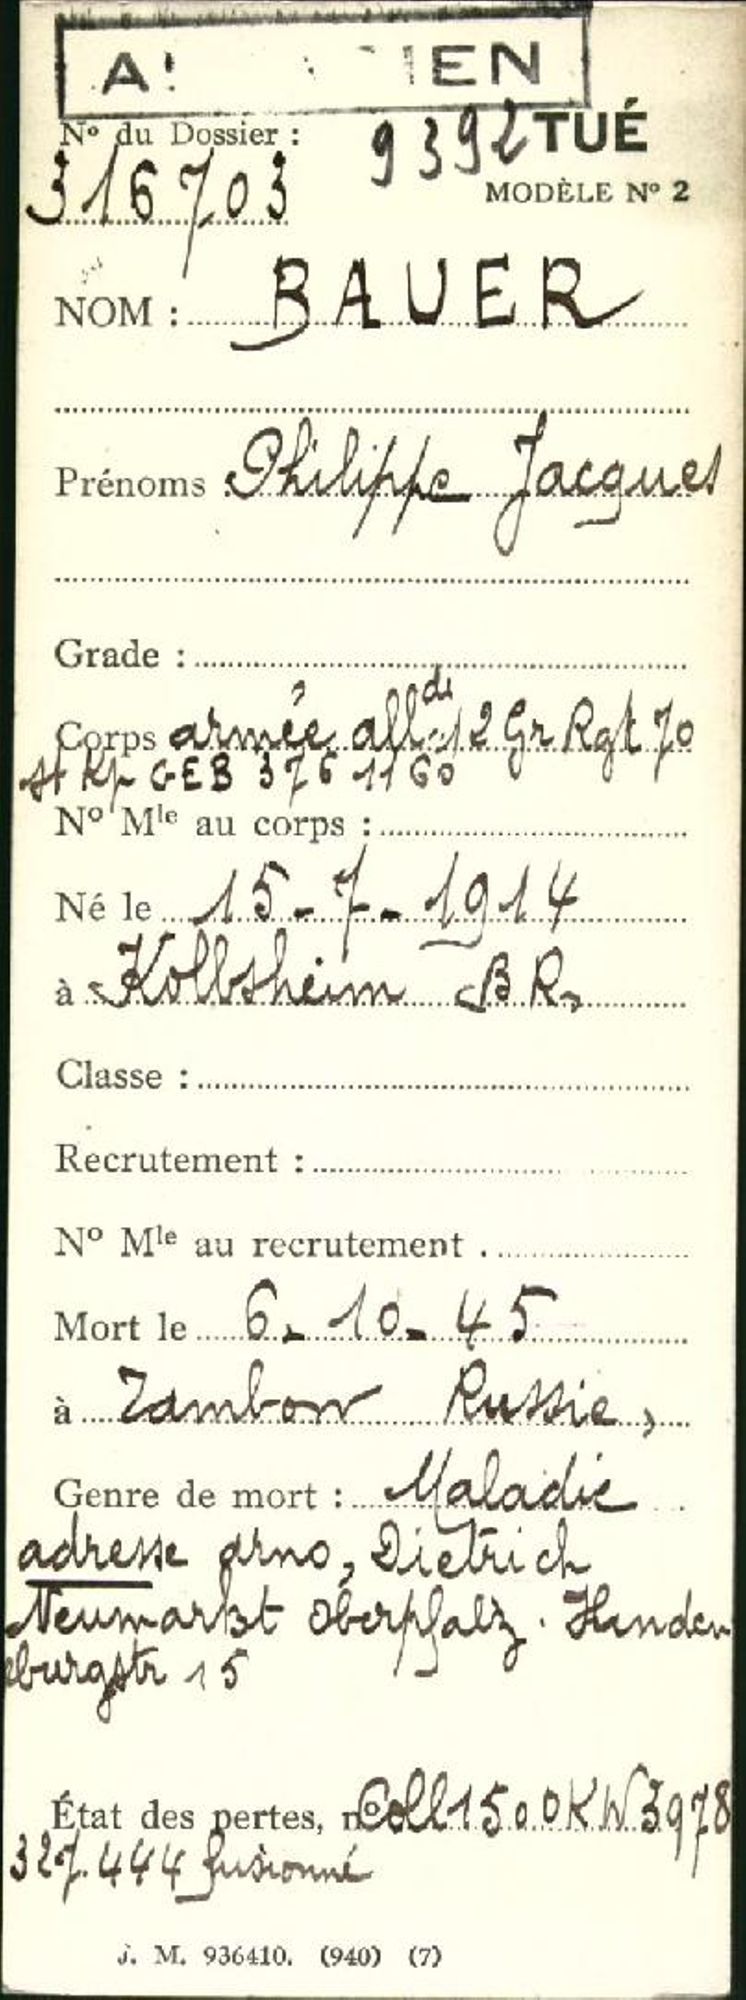 A! IEN
N° du Dossier : 9392 TUÉ
316703 MODÈLE N° 2
NOM : BAUER
Prénoms : Philippe Jacques
Grade :
Corps armée all. di 12 Gr Rgt 70
St Kp GEB 376 1160
N° Mle au corps :
Né le 15-7-1914
à Kolbsheim BR.
Classe :
Recrutement :
N° Mle au recrutement .
Mort le 6.10.45
à Tambow Russie,
Genre de mort : Maladie
adresse arno, Dietrich
Neumarkt Oberpfalz. Hinden
burgstr 15
État des pertes, n° Coll 1500 KW 3978
327.444 fusionné
J. M. 936410. (940) (7)